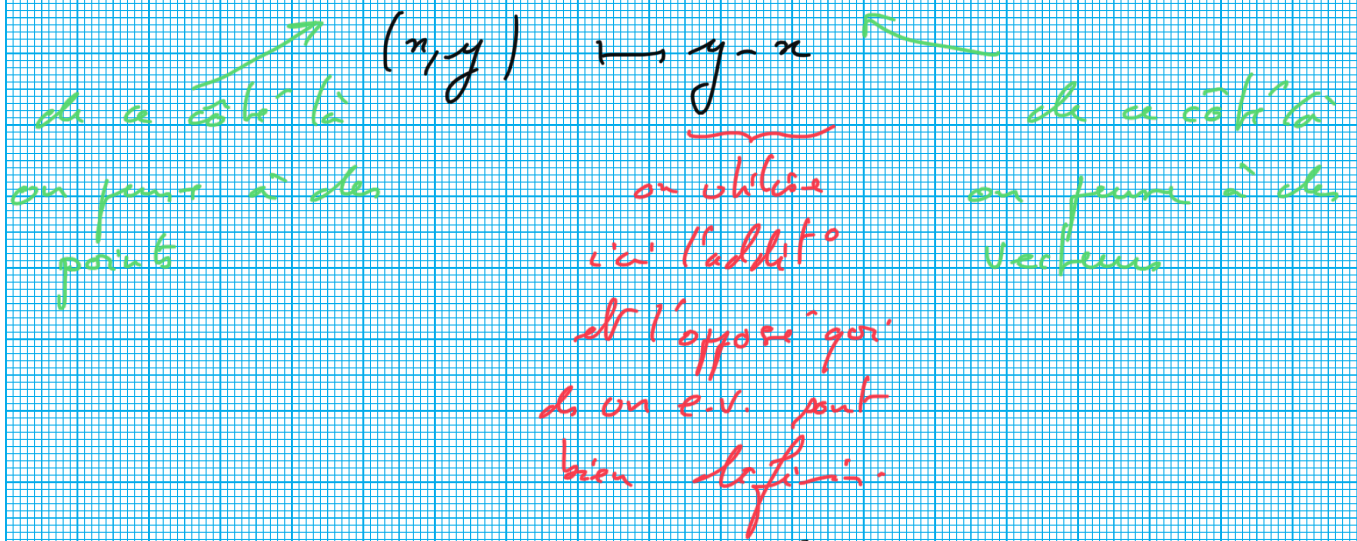 (x, y) ⟼ y - x
de ce côté-là
on pense à des
points
on utilise
ici l'addit°
et l'opposé qui
ds un e.v. sont
bien définis.
de ce côté là
on pense à des
vecteurs